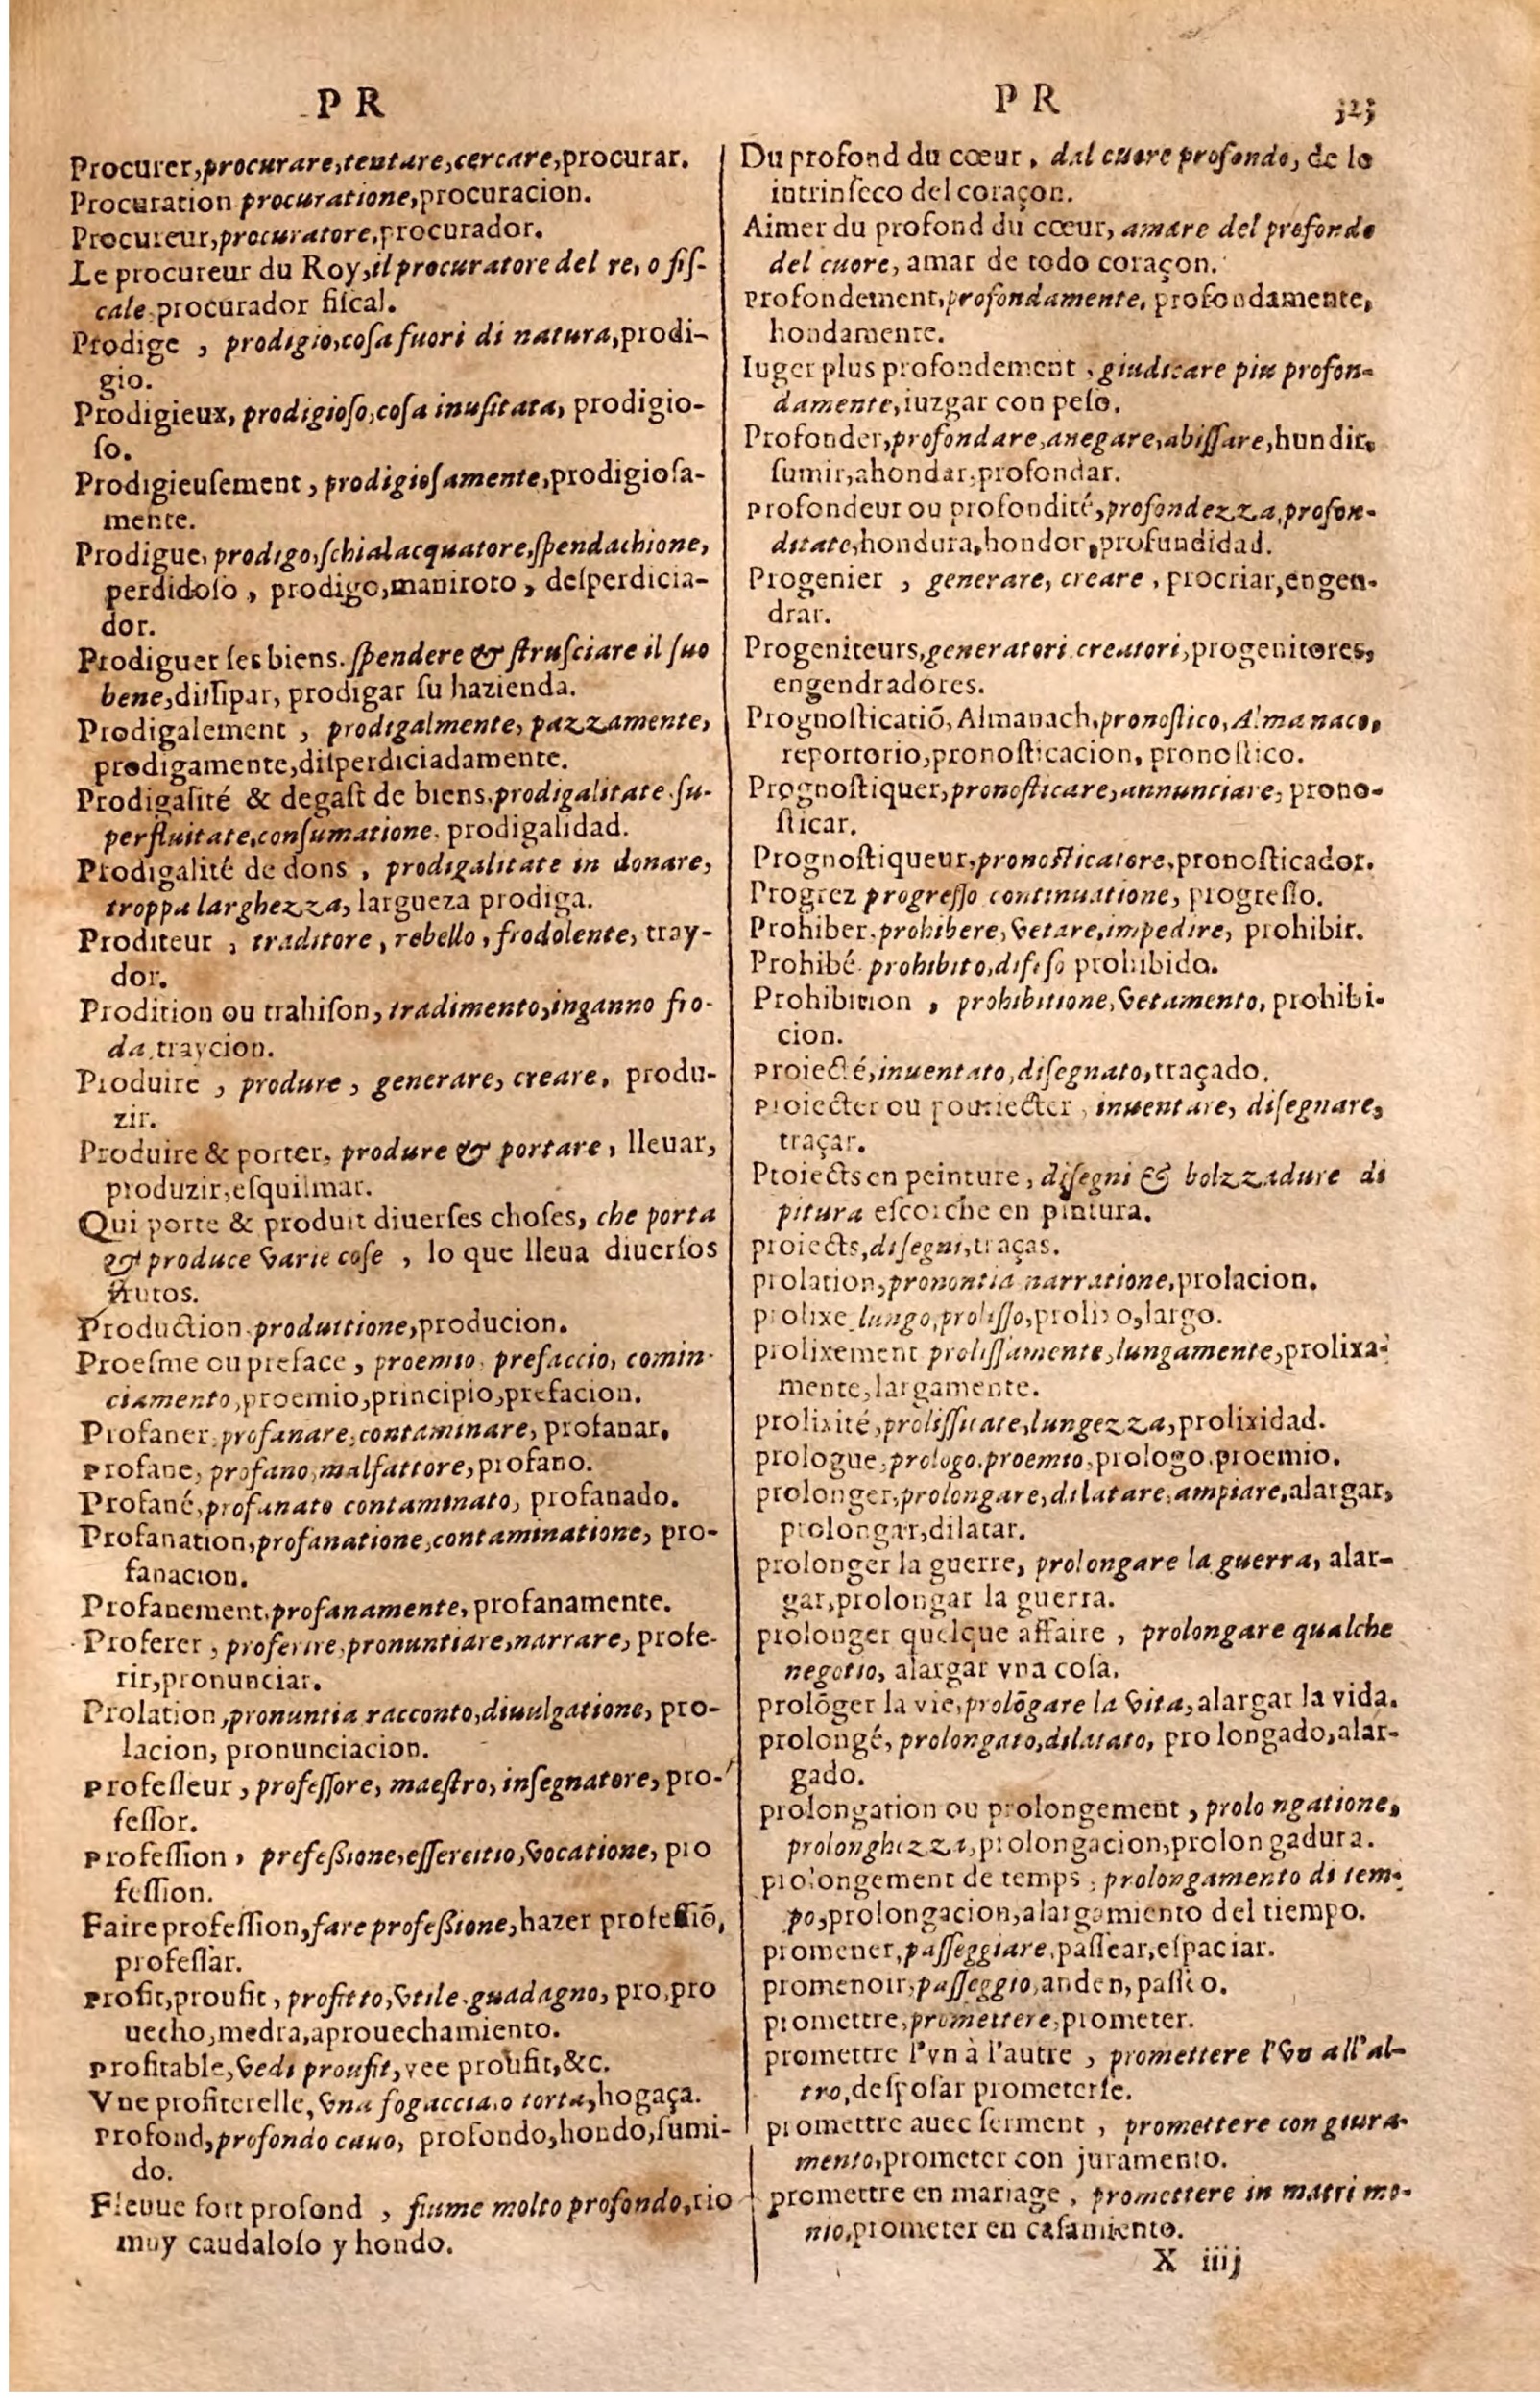 P R
Procurer, procurare, tentare, cercare, procurar.
Procuration procuratione, procuracion.
Procureur, procuratore, procurador.
Le procureur du Roy, il procuratore del re, o fiſ-
cale, procurador fiſcal.
Prodige , prodigio, coſa fuori di natura, prodi-
gio.
Prodigieux, prodigioſo, coſa inuſitata, prodigio-
ſo.
Prodigieuſement, prodigioſamente, prodigioſa-
mente.
Prodigue, prodigo, ſchialacquatore, ſpendachione,
perdidoſo , prodigo, maniroto , deſperdicia-
dor.
Prodiguer ſes biens. ſpendere & ſtruſciare il ſuo
bene, diſsipar, prodigar ſu hazienda.
Prodigalement , prodigalmente, pazzamente,
prodigamente, diſperdiciadamente.
Prodigaſité & degaſt de biens, prodigalitate ſu-
perfluitate, conſumatione, prodigalidad.
Prodigalité de dons , prodigalitate in donare,
troppa larghezza, largueza prodiga.
Proditeur , traditore , rebello, frodolente, tray-
dor.
Prodition ou trahiſon, tradimento, inganno fro-
da, traycion.
Produire , produre , generare, creare, produ-
zir.
Produire & porter, produre & portare, lleuar,
produzir, eſquilmar.
Qui porte & produit diuerſes choſes, che porta
& produce varie coſe , lo que lleua diuerſos
frutos.
Production produttione, producion.
Proeſme ou preface , proemio, prefaccio, comin-
ciamento, proemio, principio, prefacion.
Profaner, profanare, contaminare, profanar.
Profane, profano, malfattore, profano.
Profané, profanato contaminato, profanado.
Profanation, profanatione, contaminatione, pro-
fanacion.
Profanement, profanamente, profanamente.
Proferer , proferire, pronuntiare, narrare, profe-
rir, pronunciar.
Prolation, pronuntia racconto, diuulgatione, pro-
lacion, pronunciacion.
Profeſſeur , profeſſore, maeſtro, inſegnatore, pro-
feſſor.
Profeſſion , profeßione, eſſercitio, vocatione, pro
feſſion.
Faire profeſſion, fare profeßione, hazer profeſſiõ,
profeſſar.
Profit, proufit , profitto, vtile, guadagno, pro, pro
uecho, medra, aprouechamiento.
Profitable, vedi proufit, vee proufit, &c.
Vne profiterelle, vna fogaccia, o torta, hogaça.
Profond, profondo cauo, profondo, hondo, ſumi-
do.
Fleuue fort profond , fiume molto profondo, rio
muy caudaloſo y hondo.
P R 323
Du profond du cœur , dal cuore profondo, de lo
intrinſeco del coraçon.
Aimer du profond du cœur, amare del profondo
del cuore, amar de todo coraçon.
Profondement, profondamente, profondamente,
hondamente.
Iuger plus profondement , giudicare piu profon-
damente, iuzgar con peſo.
Profonder, profondare, anegare, abiſſare, hundir,
ſumir, ahondar, profondar.
Profondeur ou profondité, profondezza, profon-
ditate, hondura, hondor, profundidad.
Progenier , generare, creare , procriar, engen-
drar.
Progeniteurs, generatori, creatori, progenitores,
engendradores.
Prognoſticatiõ, Almanach, pronoſtico, Almanaco,
reportorio, pronoſticacion, pronoſtico.
Prognoſtiquer, pronoſticare, annunciare, prono-
ſticar.
Prognoſtiqueur, pronoſticatore, pronoſticador.
Progrez progreſſo continuatione, progreſſo.
Prohiber, prohibere, vetare, impedire, prohibir.
Prohibé prohibito, difeſo prohibido.
Prohibition , prohibitione, vetamento, prohibi-
cion.
Proiecté, inuentato, diſegnato, traçado.
Proiecter ou pouriecter , inuentare, diſegnare,
traçar.
Proiects en peinture , diſegni & bolzzadure di
pitura eſcorche en pintura.
proiects, diſegni, traças.
prolation, pronontia narratione, prolacion.
prolixe lungo, proliſſo, prolixo, largo.
prolixement proliſſamente, lungamente, prolixa-
mente, largamente.
prolixité, proliſſitate, lungezza, prolixidad.
prologue, prologo, proemio, prologo, proemio.
prolonger, prolongare, dilatare, ampiare, alargar,
prolongar, dilatar.
prolonger la guerre, prolongare la guerra, alar-
gar, prolongar la guerra.
prolonger quelque affaire , prolongare qualche
negotio, alargar vna coſa.
prolõger la vie, prolõgare la vita, alargar la vida.
prolongé, prolongato, dilatato, prolongado, alar-
gado.
prolongation ou prolongement , prolongatione,
prolonghezza, prolongacion, prolongadura.
prolongement de temps , prolongamento di tem-
po, prolongacion, alargamiento del tiempo.
promener, paſſeggiare, paſſear, eſpaciar.
promenoir, paſſeggio, anden, paſſeo.
promettre, promettere, prometer.
promettre l'vn à l'autre , promettere l'vn all'al-
tro, deſpoſar prometerſe.
promettre auec ſerment , promettere con giura-
mento, prometer con juramento.
promettre en mariage , promettere in matrimo-
nio, prometer en caſamiento.
X iiij